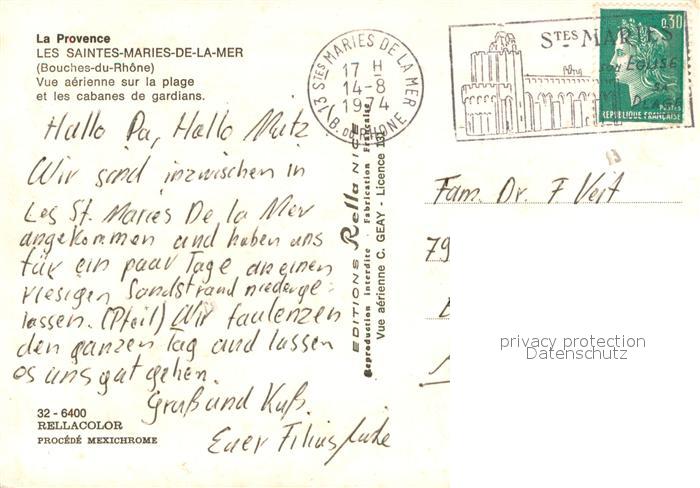 La Provence
LES SAINTES-MARIES-DE-LA-MER
(Bouches-du-Rhône)
Vue aérienne sur la plage
et les cabanes de gardians.
13 STES MARIES DE LA MER
17 H
14-8
1974
B. DU RHONE
STES MARIES
SON EGLISE
SA
PLAGE
0,30
POSTES
REPUBLIQUE FRANÇAISE
Hallo Pa, Hallo Mutz
Wir sind inzwischen in
Les St. Maries De la Mer
angekommen und haben uns
für ein paar Tage an einen
riesigen Sandstrand niederge-
lassen. (Pfeil) Wir faulenzen
den ganzen Tag und lassen
es uns gut gehen.
Gruß und Kuß.
Euer Filius
32 - 6400
RELLACOLOR
PROCÉDÉ MEXICHROME
EDITIONS Rella NICE
Reproduction interdite - Fabrication Française
Vue aérienne C. GEAY - Licence 131
13
Fam. Dr. F Veit
79
privacy protection
Datenschutz